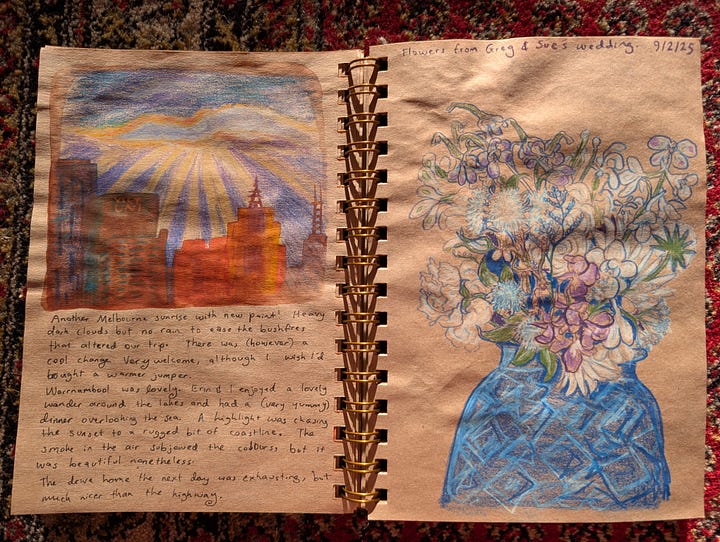 Another Melbourne sunrise with new paint! Heavy
dark clouds but no rain to ease the bushfires
that altered our trip. There was (however) a
cool change. Very welcome, although I wish I'd
bought a warmer jumper.
Warrnambool was lovely. Erin & I enjoyed a lovely
wander around the lakes and had a (very yummy)
dinner overlooking the sea. A highlight was chasing
the sunset to a rugged bit of coastline. The
smoke in the air subjowed the colours, but it
was beautiful nonetheless.
The drive home the next day was exhausting, but
much nicer than the highway.
Flowers from Greg & Sue's wedding. 9/2/25